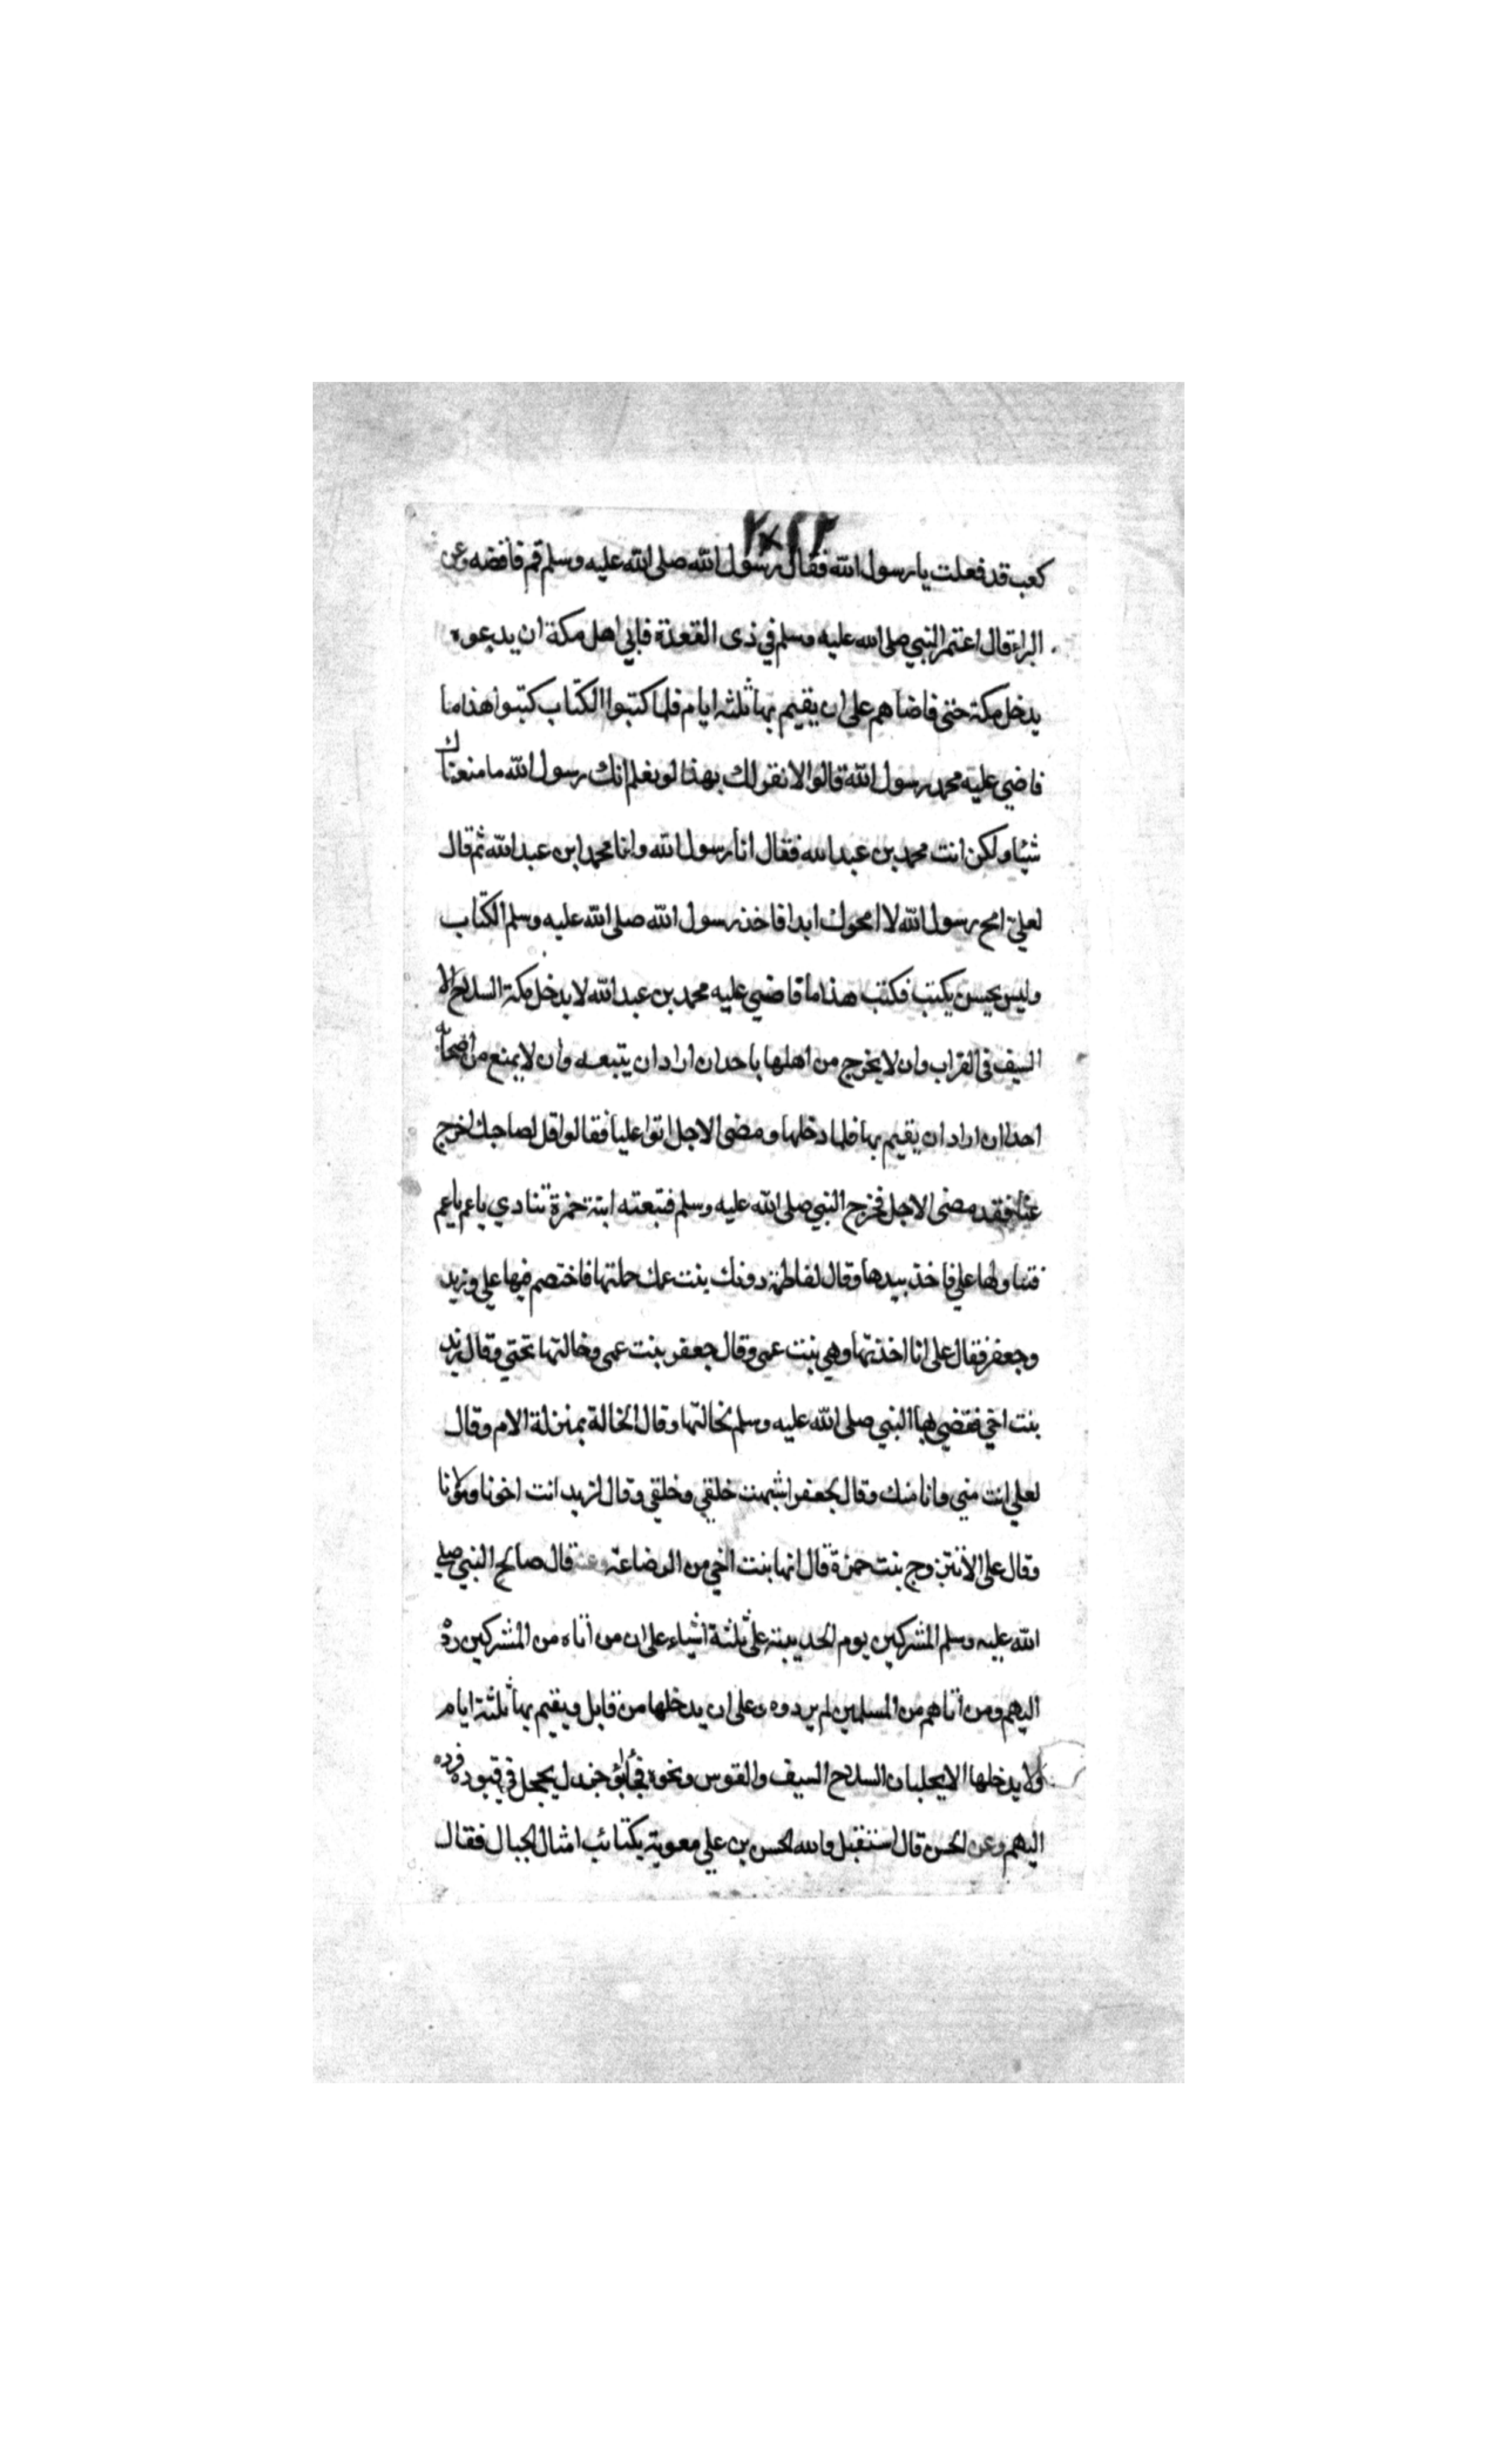 كعب قد فعلت يا رسول الله فقال رسول الله صلى الله عليه وسلم قم فاقضه وعن
البراء قال اعتمر النبي صلى الله عليه وسلم في ذى القعدة فابي اهل مكة ان يدعوه
يدخل مكة حتى قاضاهم على ان يقيم بها ثلثه ايام فلما كتبوا الكتاب كتبوا هذا ما
قاضى عليه محمد رسول الله قالوا لا نقر لك بهذا لو نعلم انك رسول الله ما منعناك
شيئا ولكن انت محمد بن عبد الله فقال انا رسول الله وانا محمد ابن عبد الله ثم قال
لعلي امح رسول الله لا امحوك ابدا فاخذ رسول الله صلى الله عليه وسلم الكتاب
وليس يحسن يكتب فكتب هذا ما قاضى عليه محمد بن عبد الله لا يدخل مكة السلاح الا
السيف في القراب وان لا يخرج من اهلها باحد ان اراد ان يتبعه وان لا يمنع من اصحابه
احدا ان اراد ان يقيم بها فلما دخلها ومضى الاجل اتوا عليا فقالوا قل لصاحبك اخرج
عنا فقد مضى الاجل فخرج النبي صلى الله عليه وسلم فتبعته ابنة حمزة تنادي يا عم يا عم
فتناولها علي فاخذ بيدها وقال لفاطمة دونك بنت عمك حملتها فاختصم فيها علي وزيد
وجعفر فقال على انا اخذتها وهي بنت عمى وقال جعفر بنت عمى وخالتها تحتي وقال زيد
بنت اخي فقضى بها النبي صلى الله عليه وسلم لخالتها وقال الخالة بمنزلة الام وقال
لعلي انت مني وانا منك وقال لجعفر اشبهت خلقي وخلقي وقال لزيد انت اخونا ومولانا
وقال على الا تتزوج بنت حمزة قال انها بنت اخي من الرضاعة وعنه قال صالح النبي صلى
الله عليه وسلم المشركين يوم الحديبية على ثلثة اشياء على ان من اتاه من المشركين رده
اليهم ومن اتاهم من المسلمين لم يردوه وعلى ان يدخلها من قابل ويقيم بها ثلثة ايام
ولا يدخلها الا بجلبان السلاح السيف والقوس ونحوه فجاء ابو جندل يحجل في قيوده فرده
اليهم وعن الحسن قال استقبل والله الحسن بن علي معوية بكتائب امثال الجبال فقال